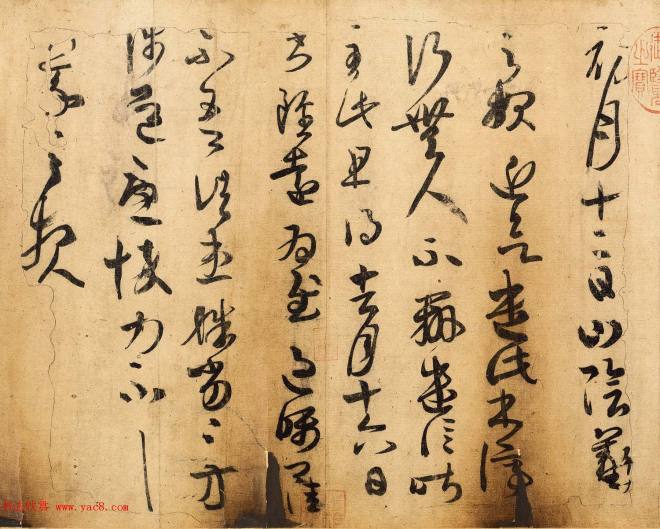 初月十二日山陰羲
之報近欲遣此書停
行無人不辦遣信昨
至此且得去月十六日
書雖遠為慰過囑卿佳
不吾諸患殊劣〻方
陟道憂悴力不具
羲之報
www.yac8.com